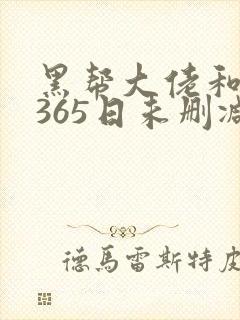 黑帮大佬和
365日未删减
德馬雷斯特皮